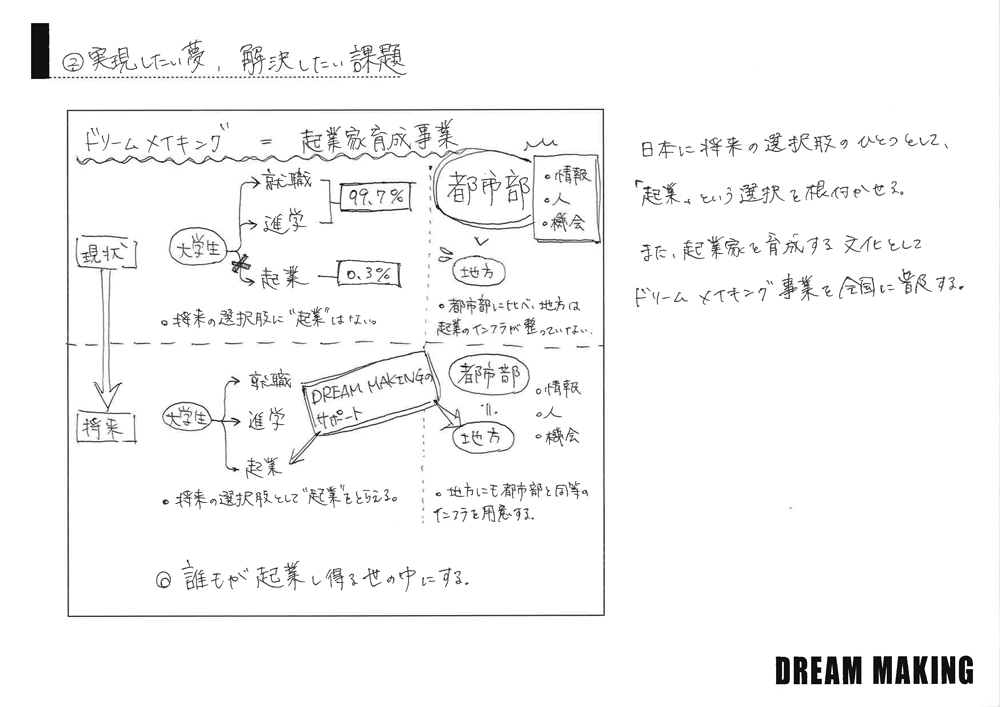 ②実現したい夢, 解決したい課題
ドリームメイキング = 起業家育成事業
現状
大学生
就職
進学
99.7%
起業
0.3%
。将来の選択肢に"起業"はない。
都市部
。情報
。人
。機会
地方
。都市部に比べ、地方は
起業のインフラが整っていない.
将来
大学生
就職
進学
起業
DREAM MAKINGの
サポート
。将来の選択肢として"起業"をとらえる。
都市部
=
地方
。情報
。人
。機会
。地方にも都市部と同等の
インフラを用意する.
◎ 誰もが起業し得る世の中にする.
日本に将来の選択肢のひとつとして、
「起業」という選択を根付かせる。
また、起業家を育成する文化として
ドリームメイキング事業を全国に普及する。
DREAM MAKING